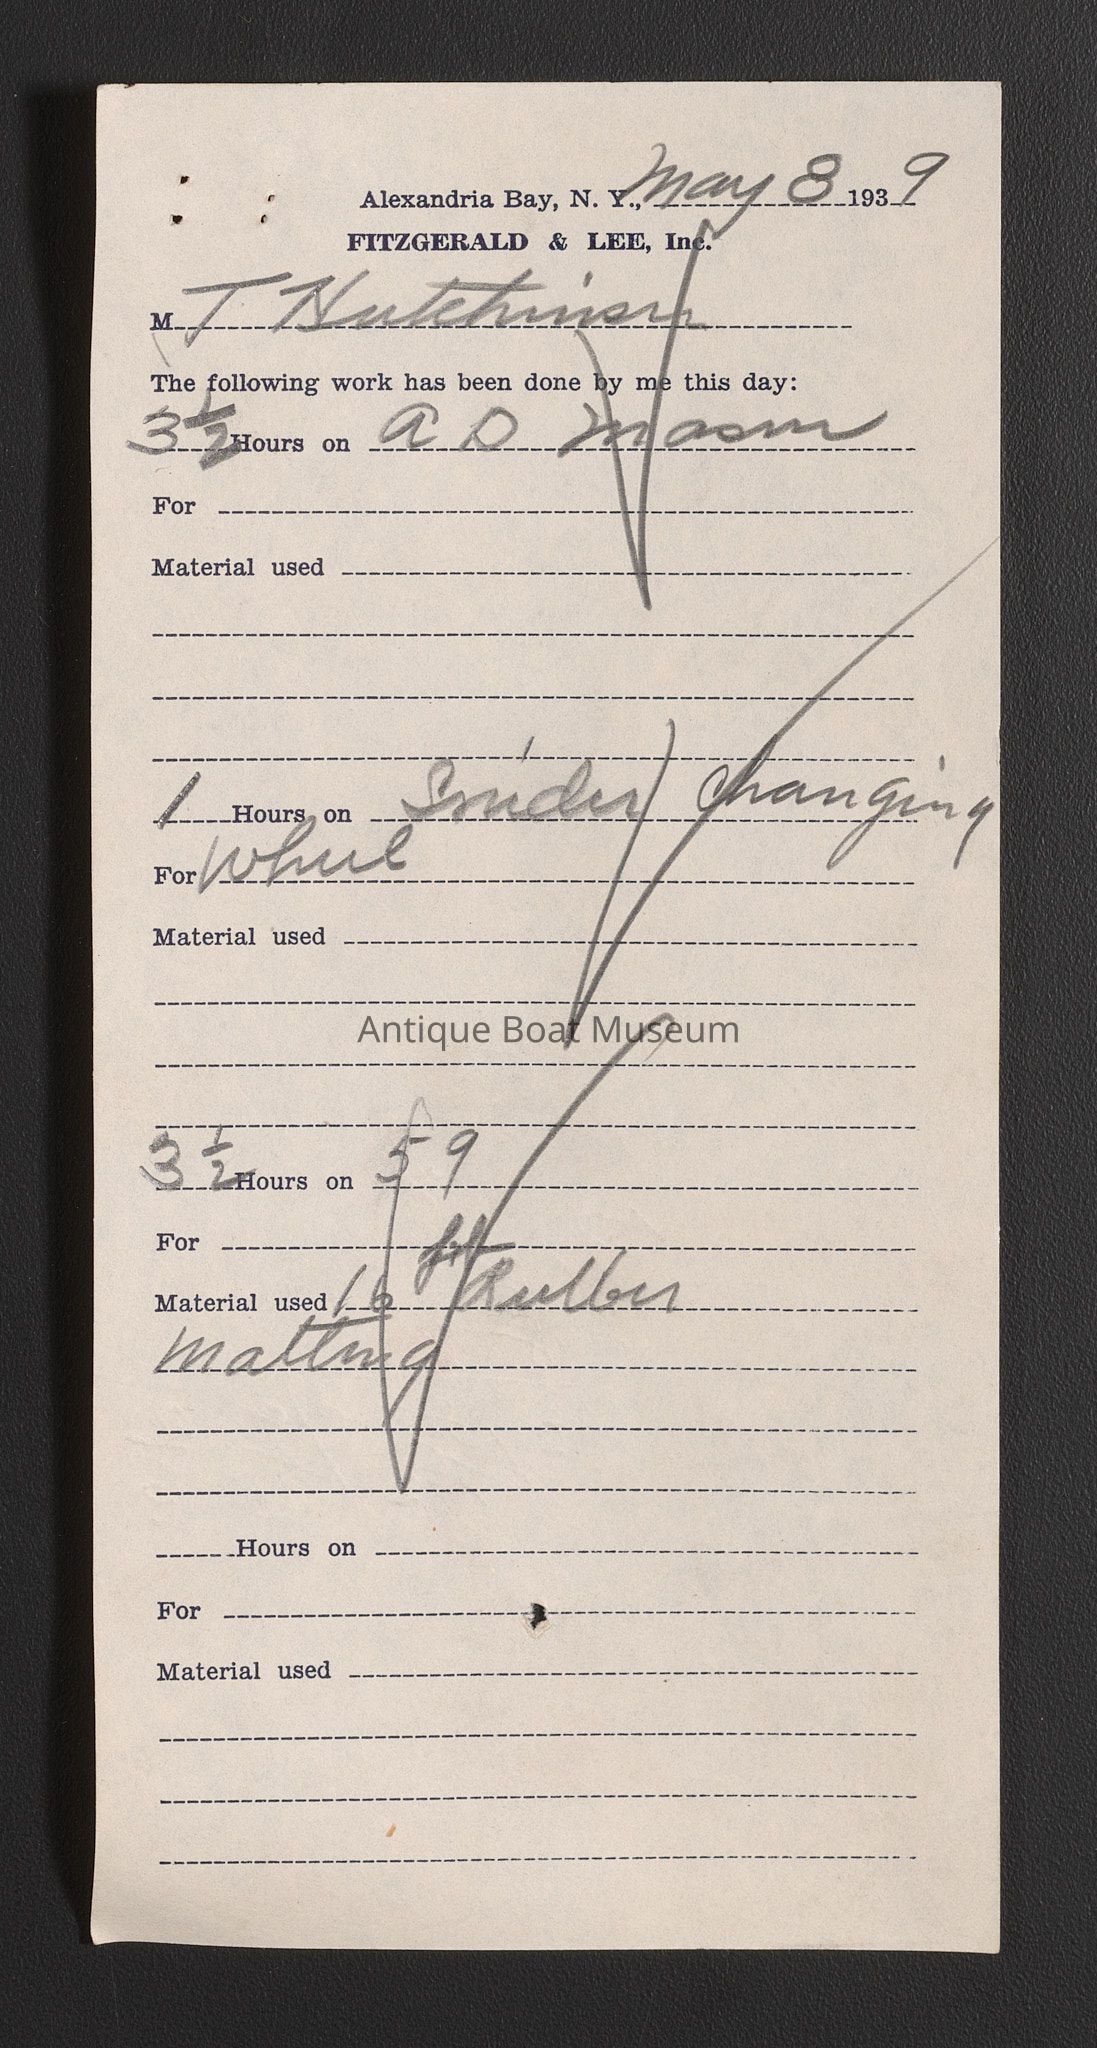 Alexandria Bay, N. Y., May 8 1939
FITZGERALD & LEE, Inc.
M T Hutchinson
The following work has been done by me this day:
3 1/2 Hours on A D Mason
For
Material used
1 Hours on Snider changing
For Wheel
Material used
Antique Boat Museum
3 1/2 Hours on 59
For
Material used 16 ft Rubber
Matting
Hours on
For
Material used